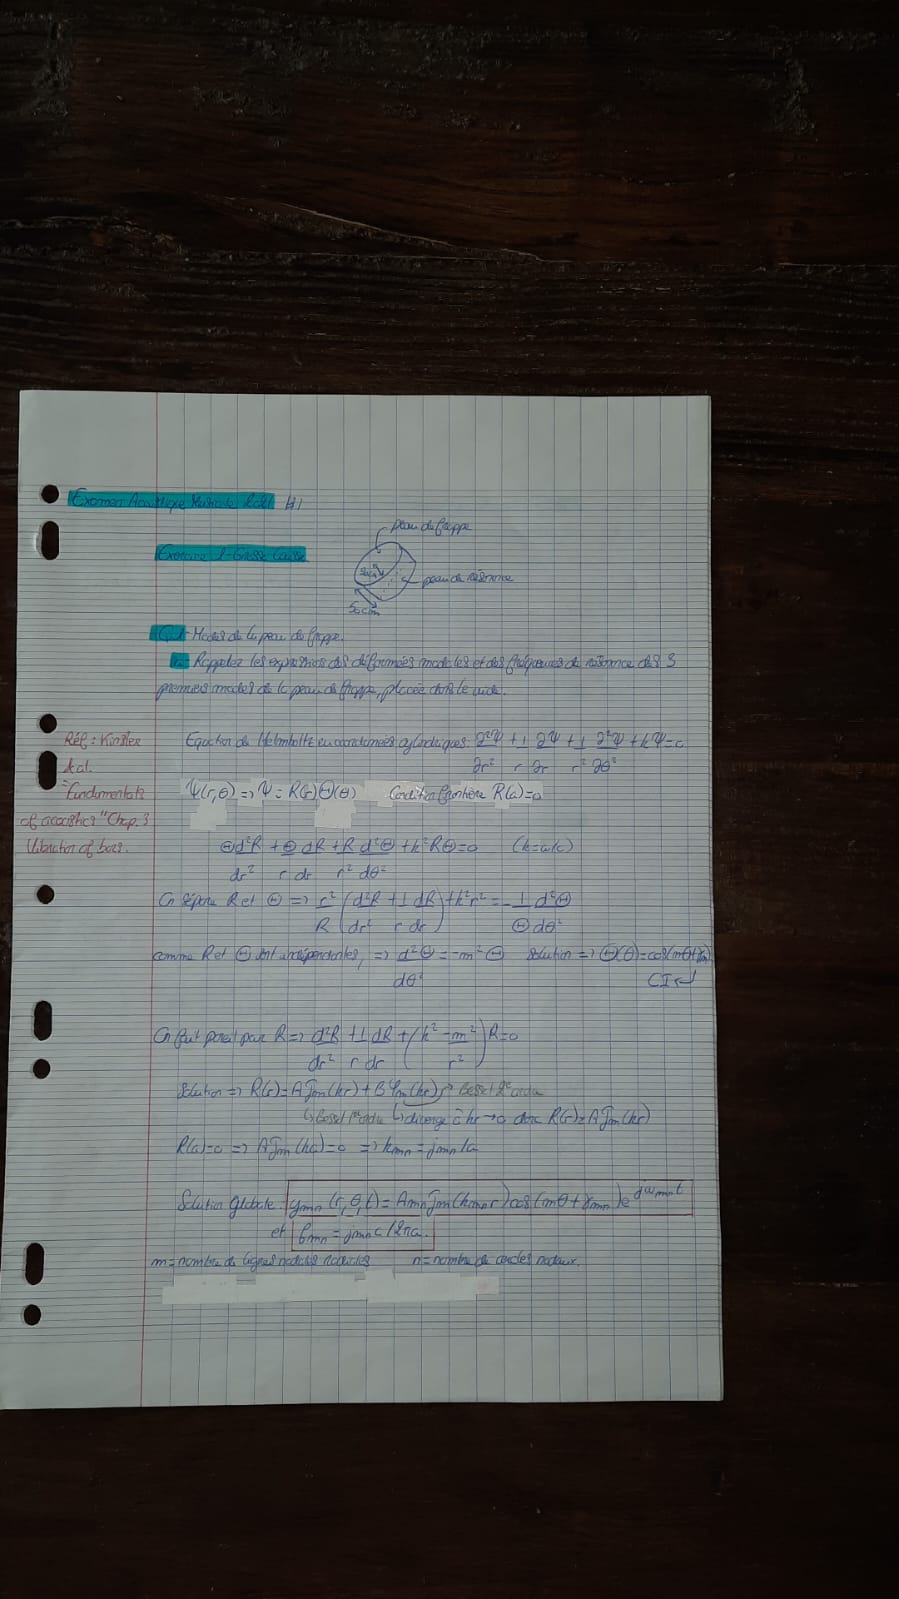 Examen Acoustique Musicale 2021 H1
peau de frappe
Exercice 1 - Grosse Caisse
peau de résonance
50cm
Q1 - Modes de la peau de frappe.
Rappelez les expressions des déformées modales et des fréquences de résonance des 3
premiers modes de la peau de frappe, placée dans le vide.
Réf : Kinsler
& al.
"Fundamentals
of acoustics" Chap. 3
Vibration of bars.
Equation de Helmholtz en coordonnées cylindriques: ∂²Ψ/∂r² + 1/r ∂Ψ/∂r + 1/r² ∂²Ψ/∂θ² + k²Ψ=0
Ψ(r,θ) => Ψ = R(r)Θ(θ) Condition frontière R(a)=0
Θ d²R/dr² + Θ/r dR/dr + R/r² d²Θ/dθ² + k²RΘ=0 (k=ω/c)
On sépare R et Θ => r²/R (d²R/dr² + 1/r dR/dr) + k²r² = -1/Θ d²Θ/dθ²
comme R et Θ sont indépendantes, => d²Θ/dθ² = -m²Θ solution => Θ(θ)=cos(mθ+γm)
CI
On fait pareil pour R => d²R/dr² + 1/r dR/dr + (k² - m²/r²)R=0
Solution => R(r)=AJm(kr)+BYm(kr) Bessel 2e ordre
Bessel 1er ordre diverge à kr→0 donc R(r)=AJm(kr)
R(a)=0 => AJm(ka)=0 => kmn = jmn/a
Solution Globale: ymn(r,θ,t)=Amn Jm(kmn r)cos(mθ+γmn)e^jωmnt
et fmn = jmn c/2πa.
m=nombre de lignes nodales radiales n=nombre de cercles nodaux.